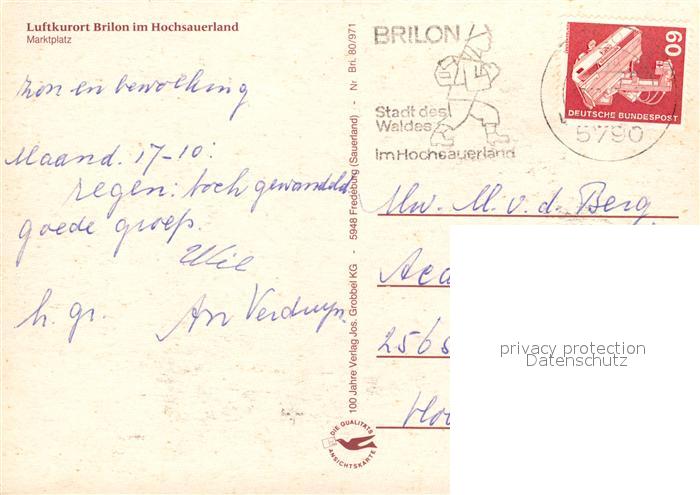 Luftkurort Brilon im Hochsauerland
Marktplatz
zon en bewolking
Maand. 17-10:
regen: toch gewandeld
goede groep.
Wil
h. gr. An Verdruyn
100 Jahre Verlag Jos. Grobbel KG - 5948 Fredeburg (Sauerland) - Nr Bri. 80/971
DIE QUALITÄTS
ANSICHTSKARTE
BRILON
Stadt des
Waldes
im Hochsauerland
60
DEUTSCHE BUNDESPOST
5790
Mw. M. v. d. Berg
Aca
256
privacy protection
Datenschutz